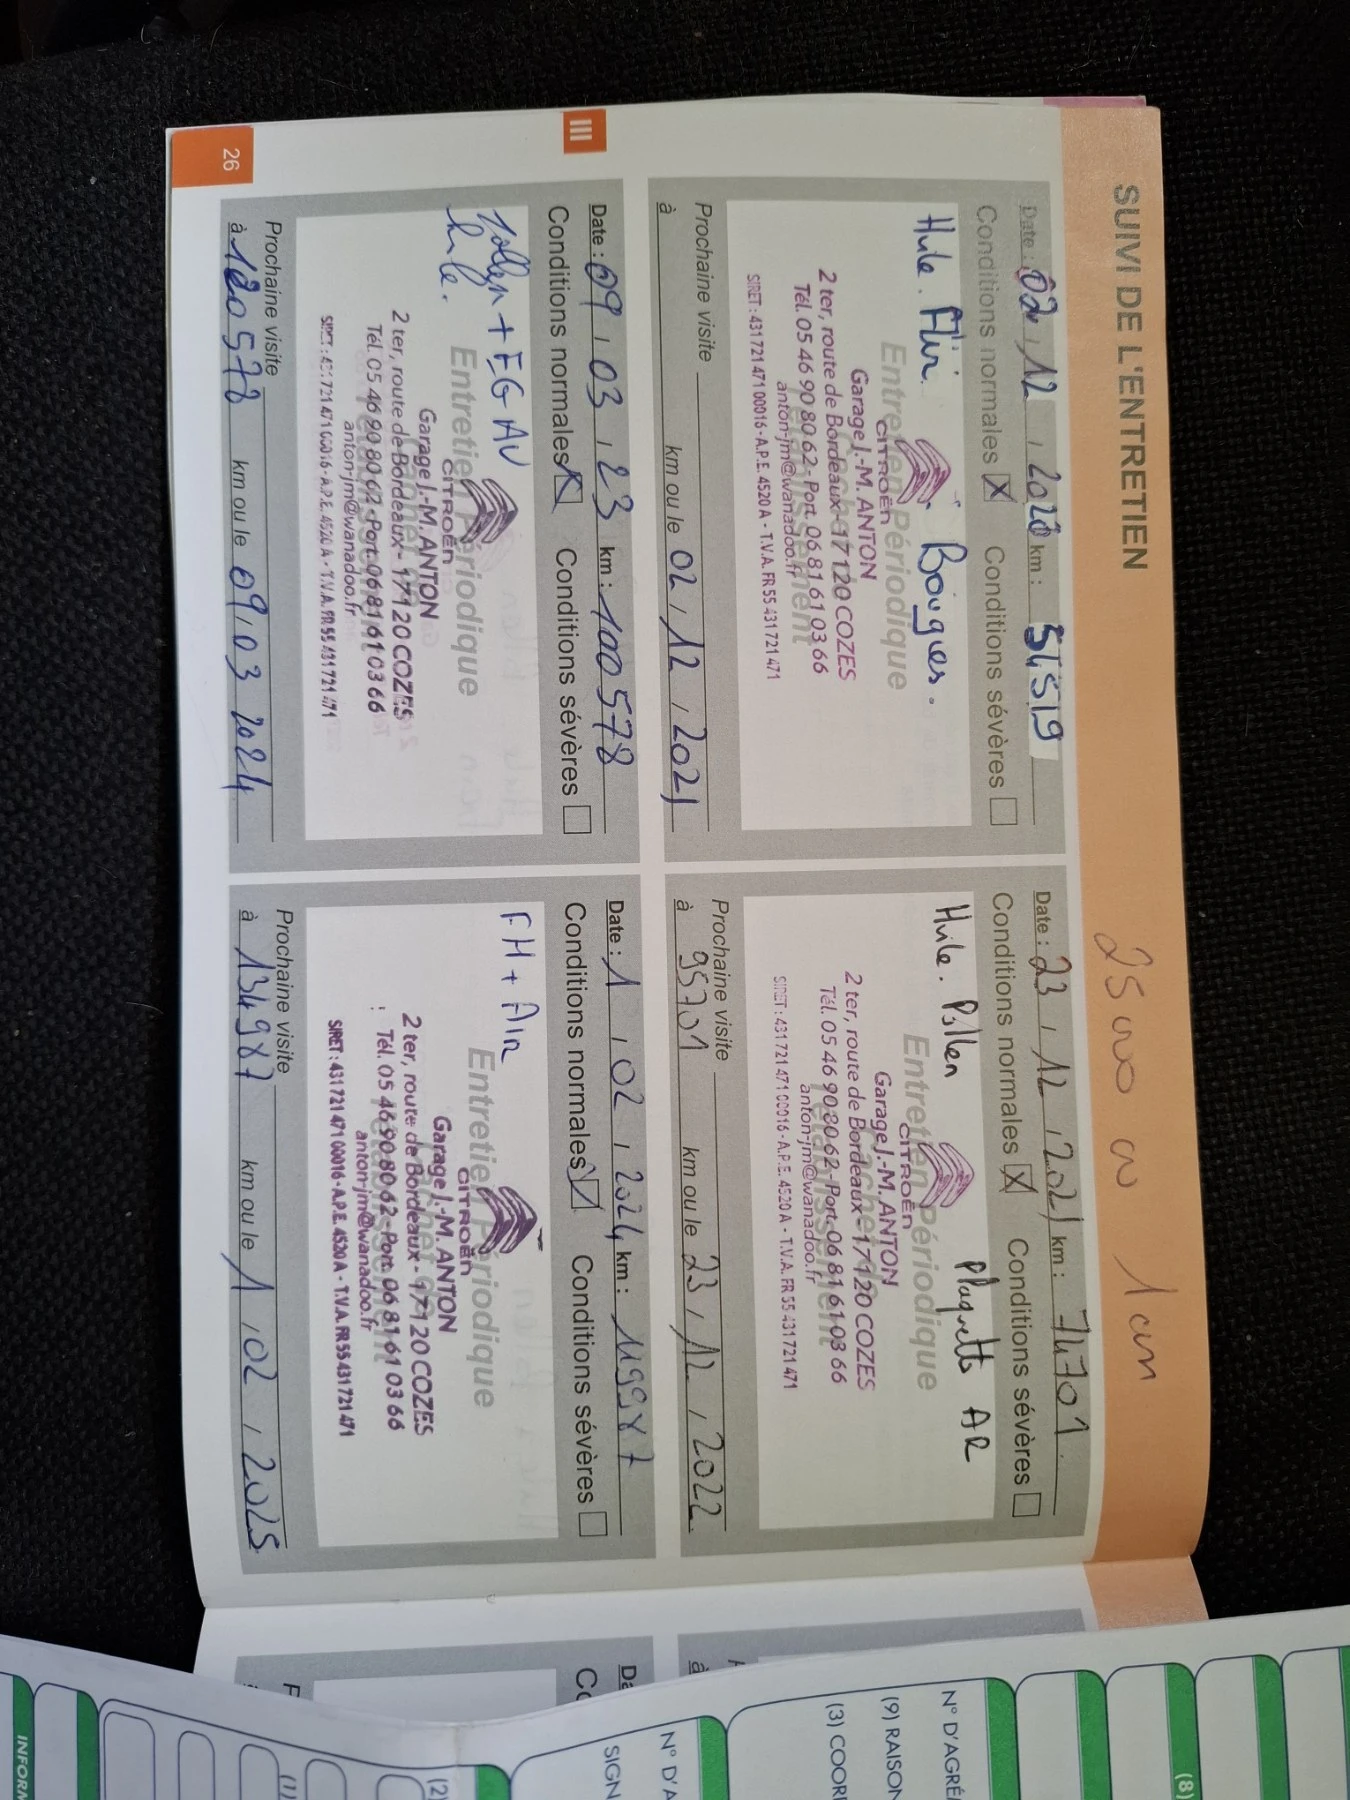 SUIVI DE L'ENTRETIEN
25 000 ou 1 an
Date : 02 , 12 , 2020 km : 51519
Conditions normales X Conditions sévères
Huile. Air. Bougies.
Entretien Périodique
CITROËN
Garage J.-M. ANTON
2 ter, route de Bordeaux - 17120 COZES
Tél. 05 46 90 80 62 - Port. 06 81 61 03 66
anton-jm@wanadoo.fr
SIRET : 431 721 471 00016 - A.P.E. 4520 A - T.V.A. FR 55 431 721 471
Prochaine visite
à km ou le 02 , 12 , 2021
Date : 23 , 12 , 2021 km : 74701
Conditions normales X Conditions sévères
Huile. Pollen Plaquetts AR
Entretien Périodique
CITROËN
Garage J.-M. ANTON
2 ter, route de Bordeaux - 17120 COZES
Tél. 05 46 90 80 62 - Port. 06 81 61 03 66
anton-jm@wanadoo.fr
SIRET : 431 721 471 00016 - A.P.E. 4520 A - T.V.A. FR 55 431 721 471
Prochaine visite
à 95701 km ou le 23 , 12 , 2022
III
Date : 09 , 03 , 23 km : 100578
Conditions normales X Conditions sévères
Pollen + FG AV
huile.
Entretien Périodique
CITROËN
Garage J.-M. ANTON
2 ter, route de Bordeaux - 17120 COZES
Tél. 05 46 90 80 62 - Port. 06 81 61 03 66
anton-jm@wanadoo.fr
SIRET : 431 721 471 00016 - A.P.E. 4520 A - T.V.A. FR 55 431 721 471
Prochaine visite
à 120578 km ou le 09 , 03 2024
Date : 1 , 02 , 2024 km : 119987
Conditions normales Conditions sévères
FH + AIR
Entretien Périodique
CITROËN
Garage J.-M. ANTON
2 ter, route de Bordeaux - 17120 COZES
Tél. 05 46 90 80 62 - Port. 06 81 61 03 66
anton-jm@wanadoo.fr
SIRET : 431 721 471 00016 - A.P.E. 4520 A - T.V.A. FR 55 431 721 471
Prochaine visite
à 134987 km ou le 1 , 02 , 2025
26
(8)
N° D'AGRÉ
(9) RAISON
(3) COOR
N° D'A
SIGN
(2)
(1)
INFORM